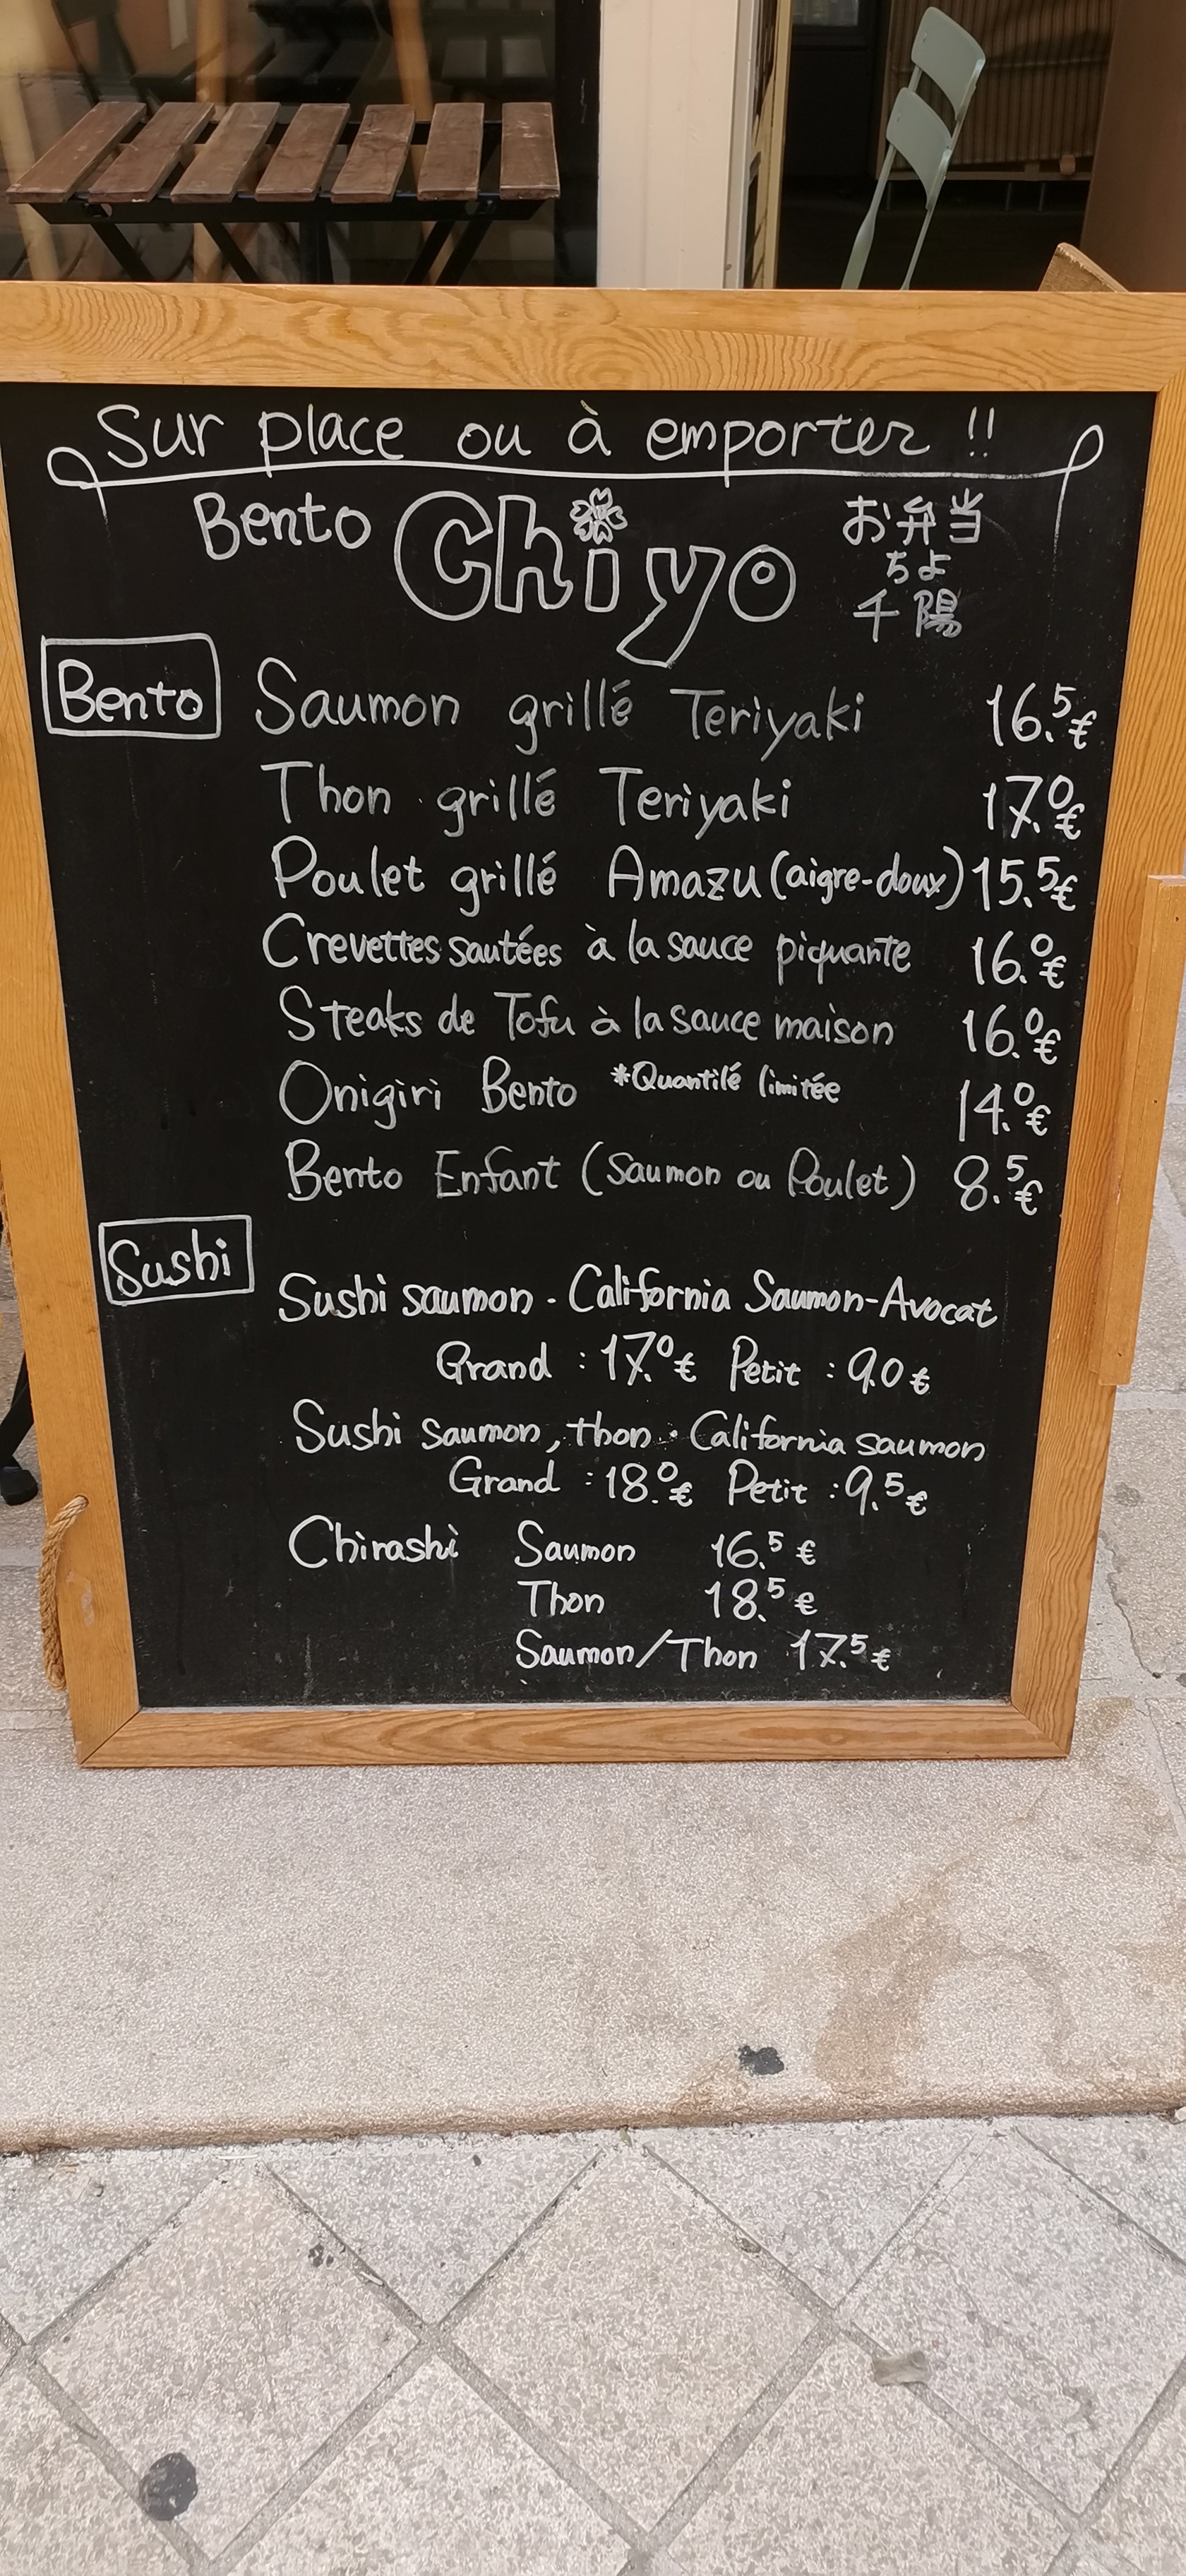 Sur place ou à emporter !!
Bento Chiyo お弁当
ちよ
千陽
Bento Saumon grillé Teriyaki 16.5€
Thon grillé Teriyaki 17.0€
Poulet grillé Amazu (aigre-doux) 15.5€
Crevettes sautées à la sauce piquante 16.0€
Steaks de Tofu à la sauce maison 16.0€
Onigiri Bento *Quantité limitée 14.0€
Bento Enfant (Saumon ou Poulet) 8.5€
Sushi
Sushi saumon · California Saumon-Avocat
Grand : 17.0€ Petit : 9.0€
Sushi saumon, thon · California saumon
Grand : 18.0€ Petit : 9.5€
Chirashi Saumon 16.5€
Thon 18.5€
Saumon/Thon 17.5€